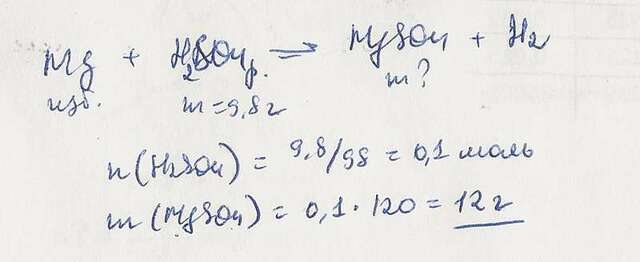 Mg + H2SO4 р. = MgSO4 + H2
изб. m = 9,8 г m?
n(H2SO4) = 9,8/98 = 0,1 моль
m(MgSO4) = 0,1 · 120 = 12 г